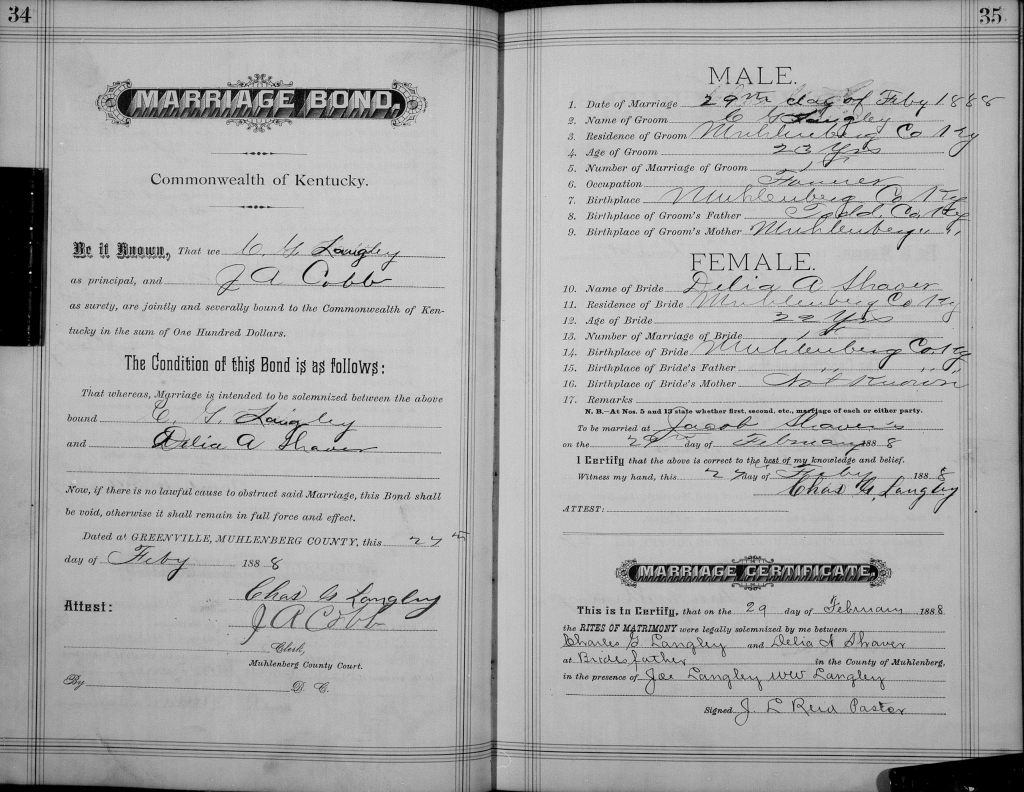 34
MARRIAGE BOND,
Commonwealth of Kentucky.
Be it Known, That we C. G. Langley
as principal, and J A Cobb
as surety, are jointly and severally bound to the Commonwealth of Ken-
tucky in the sum of One Hundred Dollars.
The Condition of this Bond is as follows:
That whereas, Marriage is intended to be solemnized between the above
bound C. G. Langley
and Delia A Shaver
Now, if there is no lawful cause to obstruct said Marriage, this Bond shall
be void, otherwise it shall remain in full force and effect.
Dated at GREENVILLE, MUHLENBERG COUNTY, this 27th
day of Feby 1888
Chas G Langley
Attest: J A Cobb
Clerk,
Muhlenberg County Court.
By D. C.
35
MALE.
1. Date of Marriage 29th day of Feby 1888
2. Name of Groom C G Langley
3. Residence of Groom Muhlenberg Co Ky
4. Age of Groom 23 Yrs
5. Number of Marriage of Groom 1st
6. Occupation Farmer
7. Birthplace Muhlenberg Co Ky
8. Birthplace of Groom's Father Todd Co Ky
9. Birthplace of Groom's Mother Muhlenberg " "
FEMALE.
10. Name of Bride Delia A Shaver
11. Residence of Bride Muhlenberg Co Ky
12. Age of Bride 22 Yrs
13. Number of Marriage of Bride 1st
14. Birthplace of Bride Muhlenberg Co Ky
15. Birthplace of Bride's Father " " "
16. Birthplace of Bride's Mother Not Known
17. Remarks
N. B.—At Nos. 5 and 13 state whether first, second, etc., marriage of each or either party.
To be married at Jacob Shaver's
on the 29th day of February 1888
I Certify that the above is correct to the best of my knowledge and belief.
Witness my hand, this 27th day of Feby 1888
Chas G. Langley
ATTEST:
MARRIAGE CERTIFICATE.
This is to Certify, that on the 29 day of February 1888
the RITES OF MATRIMONY were legally solemnized by me between
Charles G Langley and Delia A Shaver
at Brides father in the County of Muhlenberg,
in the presence of Joe Langley WW Langley
Signed J. L Reid Pastor